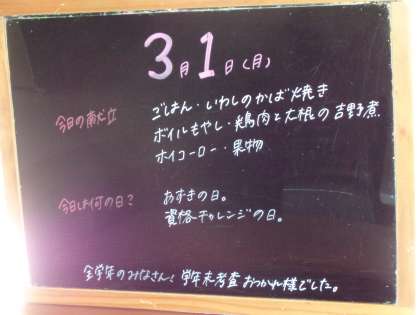 3月1日(月)
今日の献立
ごはん・いわしのかば焼き
ボイルもやし・鶏肉と大根の吉野煮
ホイコーロー・果物
今日は何の日?
あずきの日。
資格チャレンジの日。
全学年のみなさん! 学年末考査おつかれ様でした。